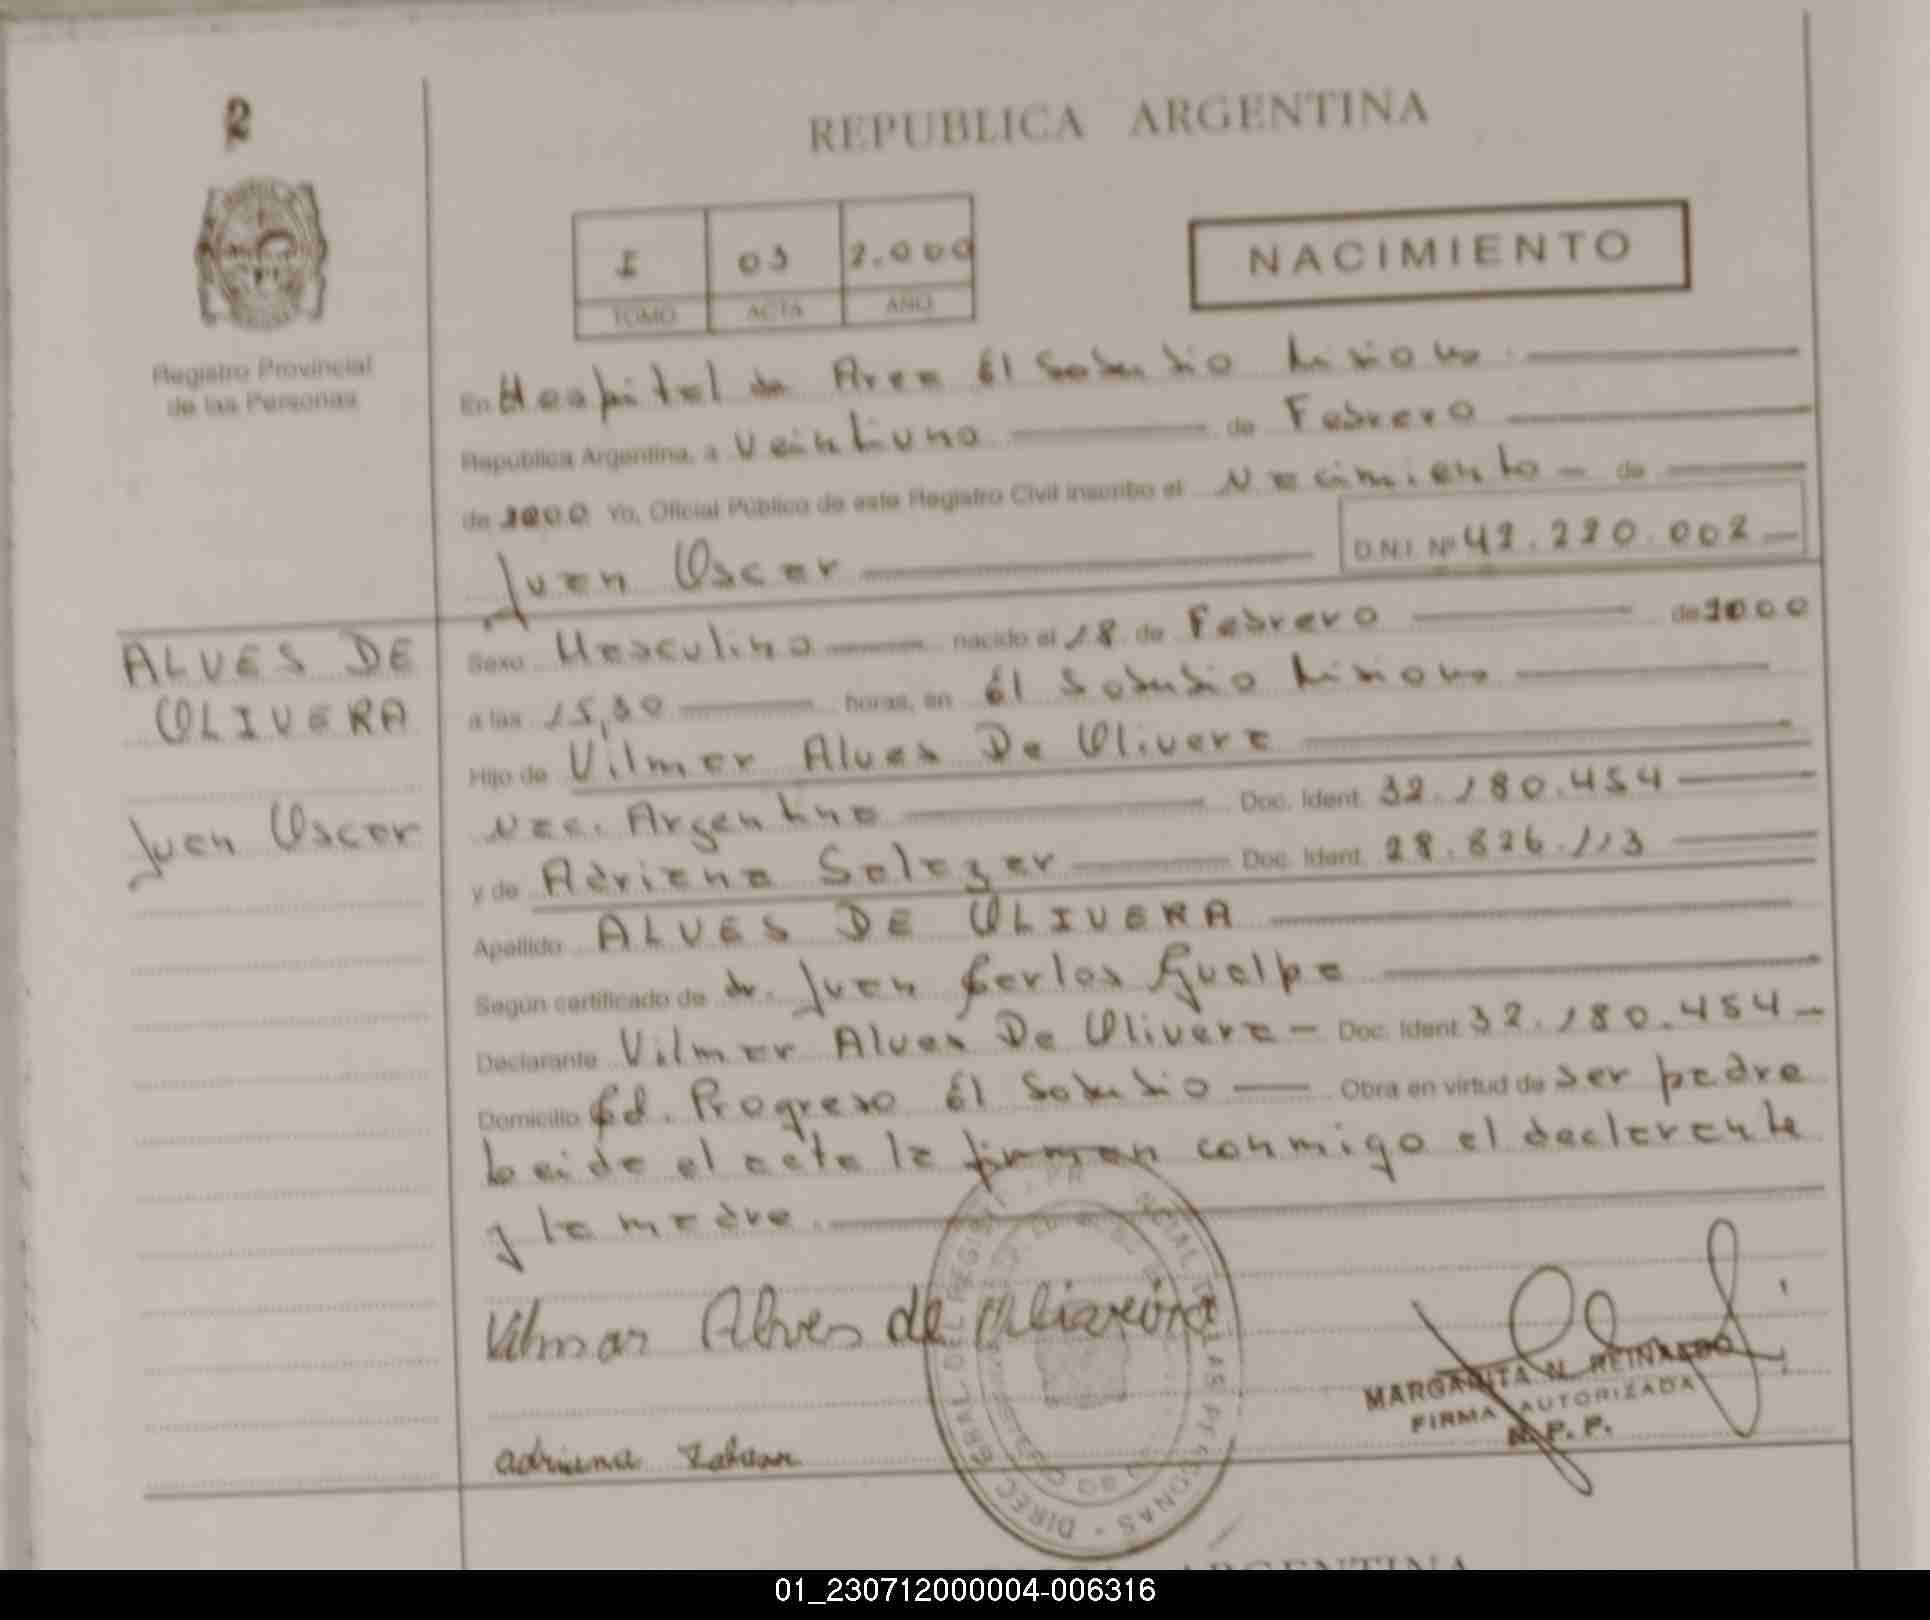 2
REPUBLICA ARGENTINA
I 03 2.000
TOMO ACTA AÑO
NACIMIENTO
Registro Provincial
de las Personas
En Hospital de Area El Soberbio Misiones
República Argentina, a Veintiuno de Febrero
de 2000 Yo, Oficial Público de este Registro Civil inscribo el Nacimiento - de
Juan Oscar D.N.I. Nº 42.220.002
ALVES DE
OLIVERA
Juan Oscar
Sexo Masculino nacido el 18 de Febrero de 2000
a las 15,30 horas, en El Soberbio Misiones
Hijo de Vilmar Alves De Olivera
Nac. Argentino Doc. Ident. 32.180.454
y de Adriana Salazar Doc. Ident. 28.826.113
Apellido ALVES DE OLIVERA
Según certificado de dr. Juan Carlos Guelpa
Declarante Vilmar Alves De Olivera - Doc. Ident. 32.180.454 -
Domicilio Cd. Progreso El Soberbio Obra en virtud de ser padre
leida el acta la firman conmigo el declarante
y la madre.
Vilmar Alves de Oliveira
MARGARITA N. REINALDO
FIRMA AUTORIZADA
R.P.P.
adriana
ARGENTINA
01_230712000004-006316